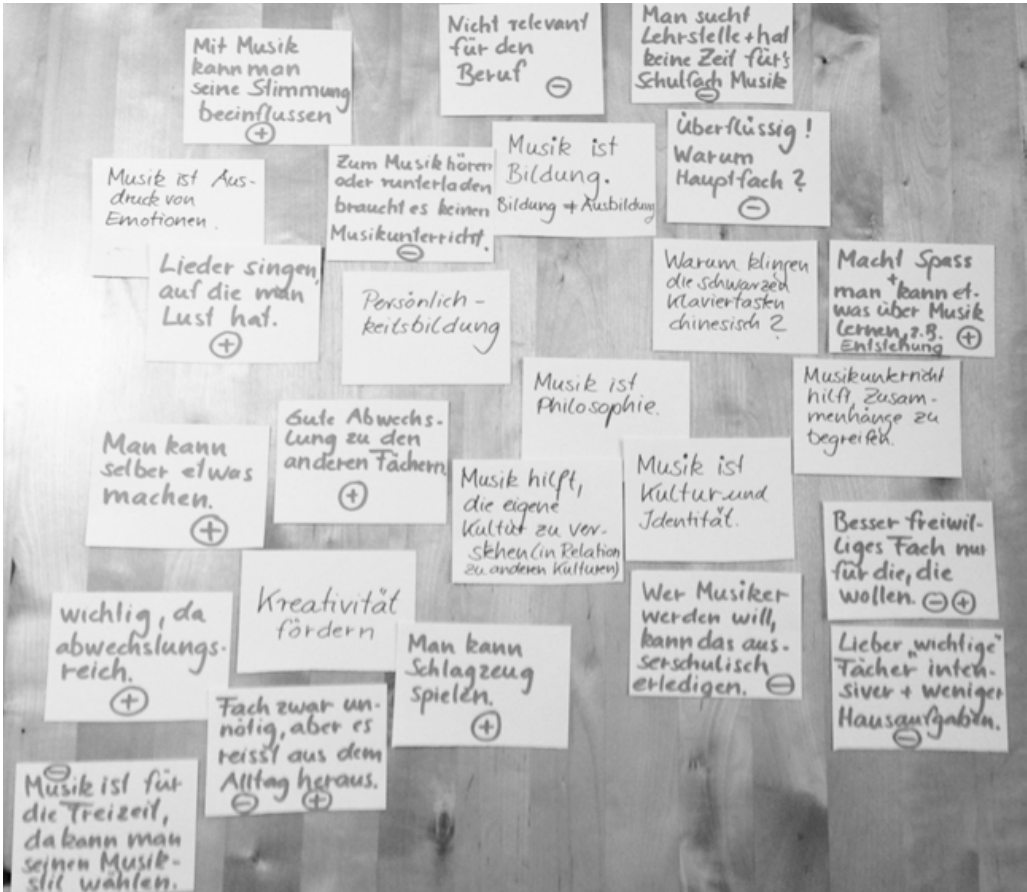 Mit Musik
kann man
seine Stimmung
beeinflussen
⊕
Nicht relevant
für den
Beruf ⊖
Man sucht
Lehrstelle + hat
keine Zeit für's
Schulfach Musik
⊖
Musik ist Aus-
druck von
Emotionen.
Zum Musik hören
oder runterladen
braucht es keinen
Musikunterricht.
⊖
Musik ist
Bildung.
Bildung + Ausbildung
Überflüssig!
Warum
Hauptfach?
⊖
Lieder singen,
auf die man
Lust hat.
⊕
Persönlich-
keitsbildung
Warum klingen
die schwarzen
Klaviertasten
chinesisch?
Macht Spass
+
man kann et-
was über Musik
lernen, z.B. ⊕
Entstehung
Musik ist
Philosophie.
Musikunterricht
hilft, Zusam-
menhänge zu
begreifen.
Man kann
selber etwas
machen.
⊕
Gute Abwechs-
lung zu den
anderen Fächern
⊕
Musik hilft,
die eigene
Kultur zu ver-
stehen (in Relation
zu anderen Kulturen)
Musik ist
Kultur und
Identität.
Besser freiwil-
liges Fach nur
für die, die
wollen. ⊖⊕
wichtig, da
abwechslungs-
reich.
⊕
Kreativität
fördern
Man kann
Schlagzeug
spielen.
⊕
Wer Musiker
werden will,
kann das aus-
serschulisch
erledigen. ⊖
Lieber „wichtige"
Fächer inten-
siver + weniger
Hausaufgaben.
⊖
Fach zwar un-
nötig, aber es
reisst aus dem
Alltag heraus.
⊖ ⊕
⊖
Musik ist für
die Freizeit,
da kann man
seinen Musik-
stil wählen.